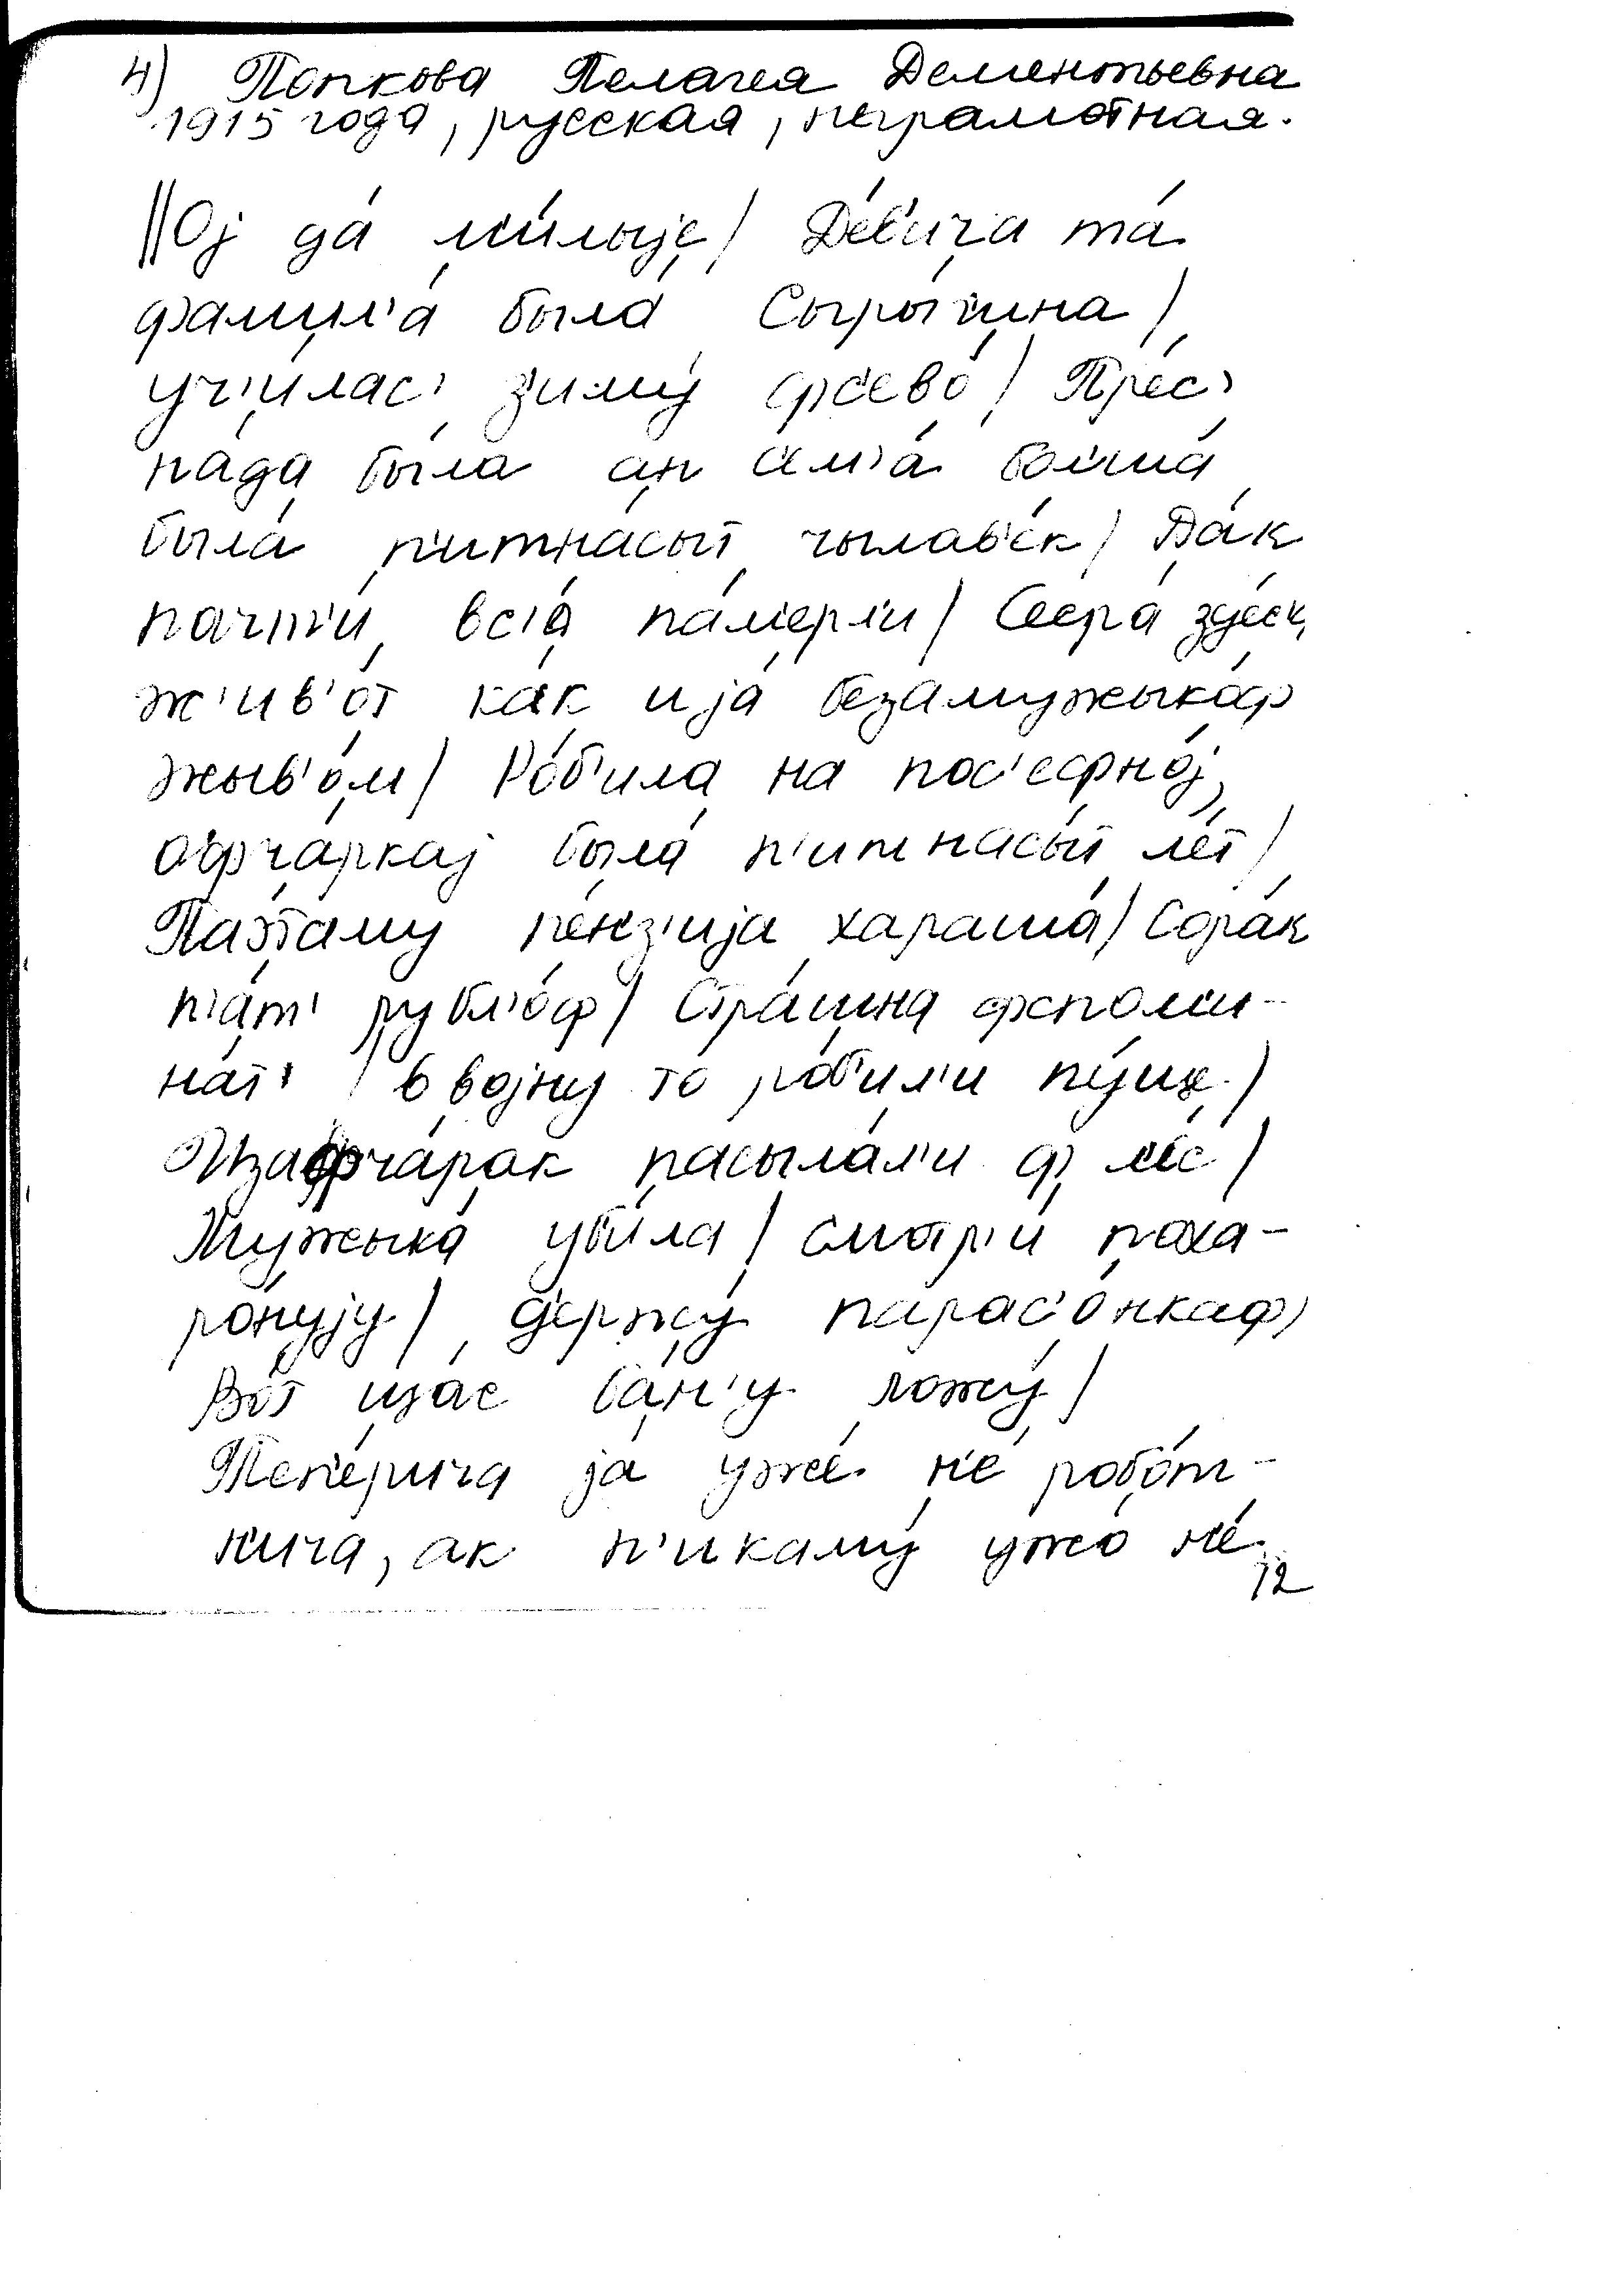 4) Попкова Пелагея Дементьевна
1915 года, русская, неграмотная.
||Ој да́ м'и́лыје/ Де́в'ича та́
фамил'а́ была́ Сыры́г'ина/
уч'и́лас' з'иму́ фс'ево́/ Пр'е́с'
на́да бы́ла ан с'ем'а́ бол'ша́
была́ п'итна́сыт чылав'е́к/ Да́к
пачт'и́ вс'а́ па́м'ерл'и/ Сестра́ зд'ес'
ж'ив'о́т ка́к и ја́ безамужыко́ф
жыв'о́м/ Ро́б'ила на пос'ефно́ј,
офча́ркај была́ п'итна́сыт ле́т/
Паэ́таму п'е́нз'ија хараша́/ Со́рак
п'а́т' рубл'о́ф/ Стра́шна фспоми-
на́т' / в војну́ то ро́б'ил'и пу́ще/
Из афча́рак пасыла́л'и ф л'е́с/
Мужыка́ уб'и́ла/ смотр'и́ поха-
ро́нују/ д'ержу́ парас'о́нкаф,
Во́т щас ба́н'у ложу́/
Теп'е́рича ја́ уже́ н'е́ робо́т-
н'ича, ак н'икаму́ ужо́ н'е́
12